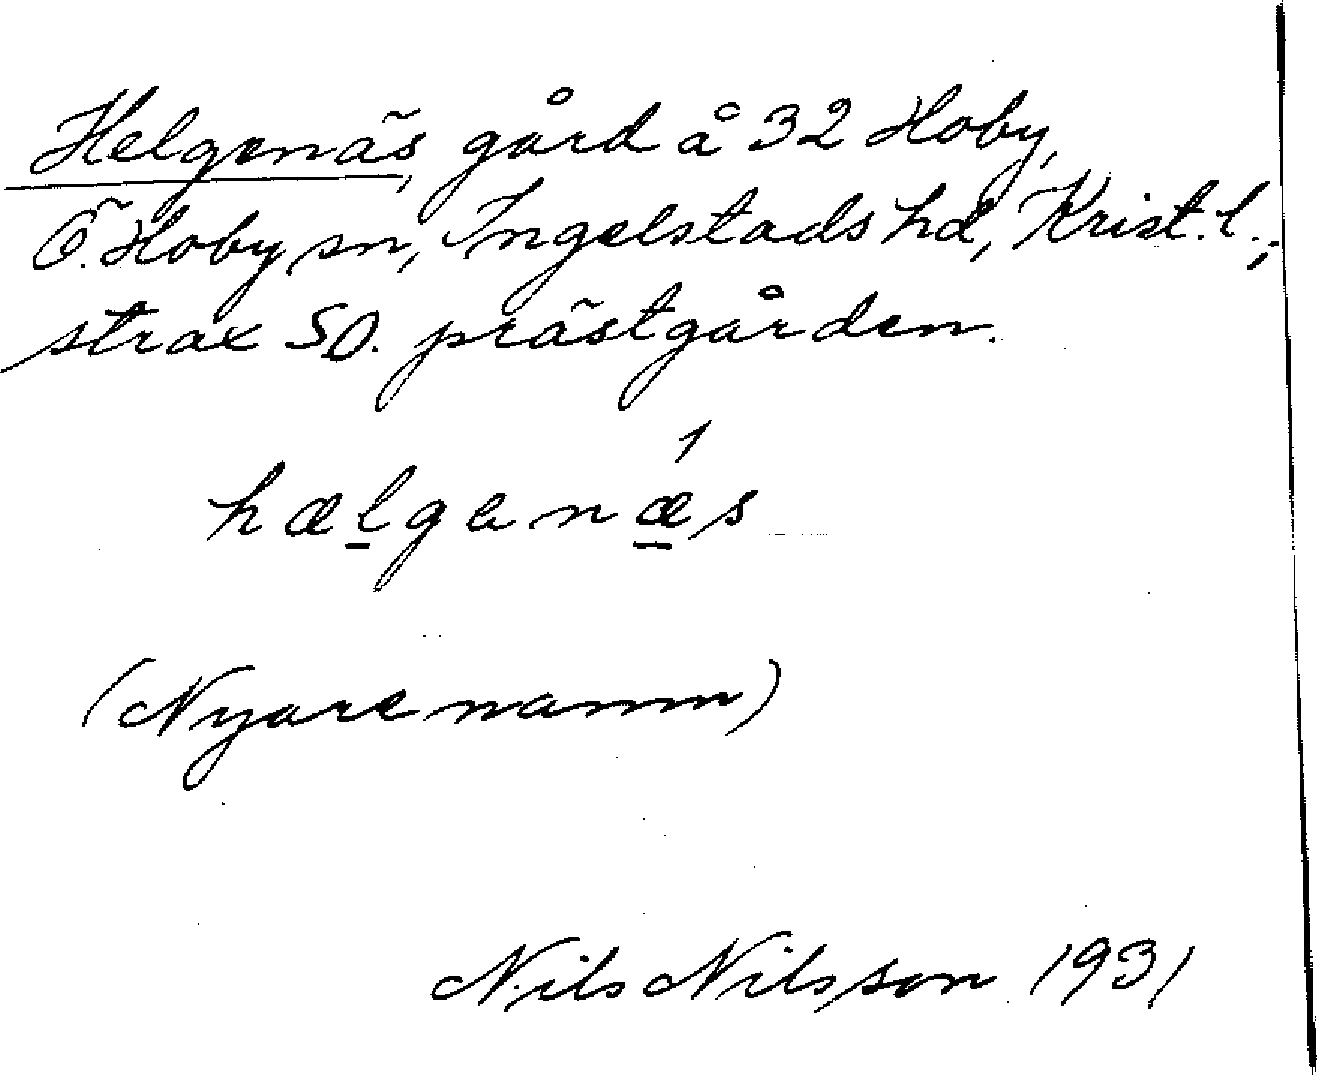 Helgenäs, gård å 32 Hoby,
Ö. Hoby sn, Ingelstads hd, Krist. l.;
strax SO. prästgården.
hælgenæs
(Nyare namn)
Nils Nilsson 1931